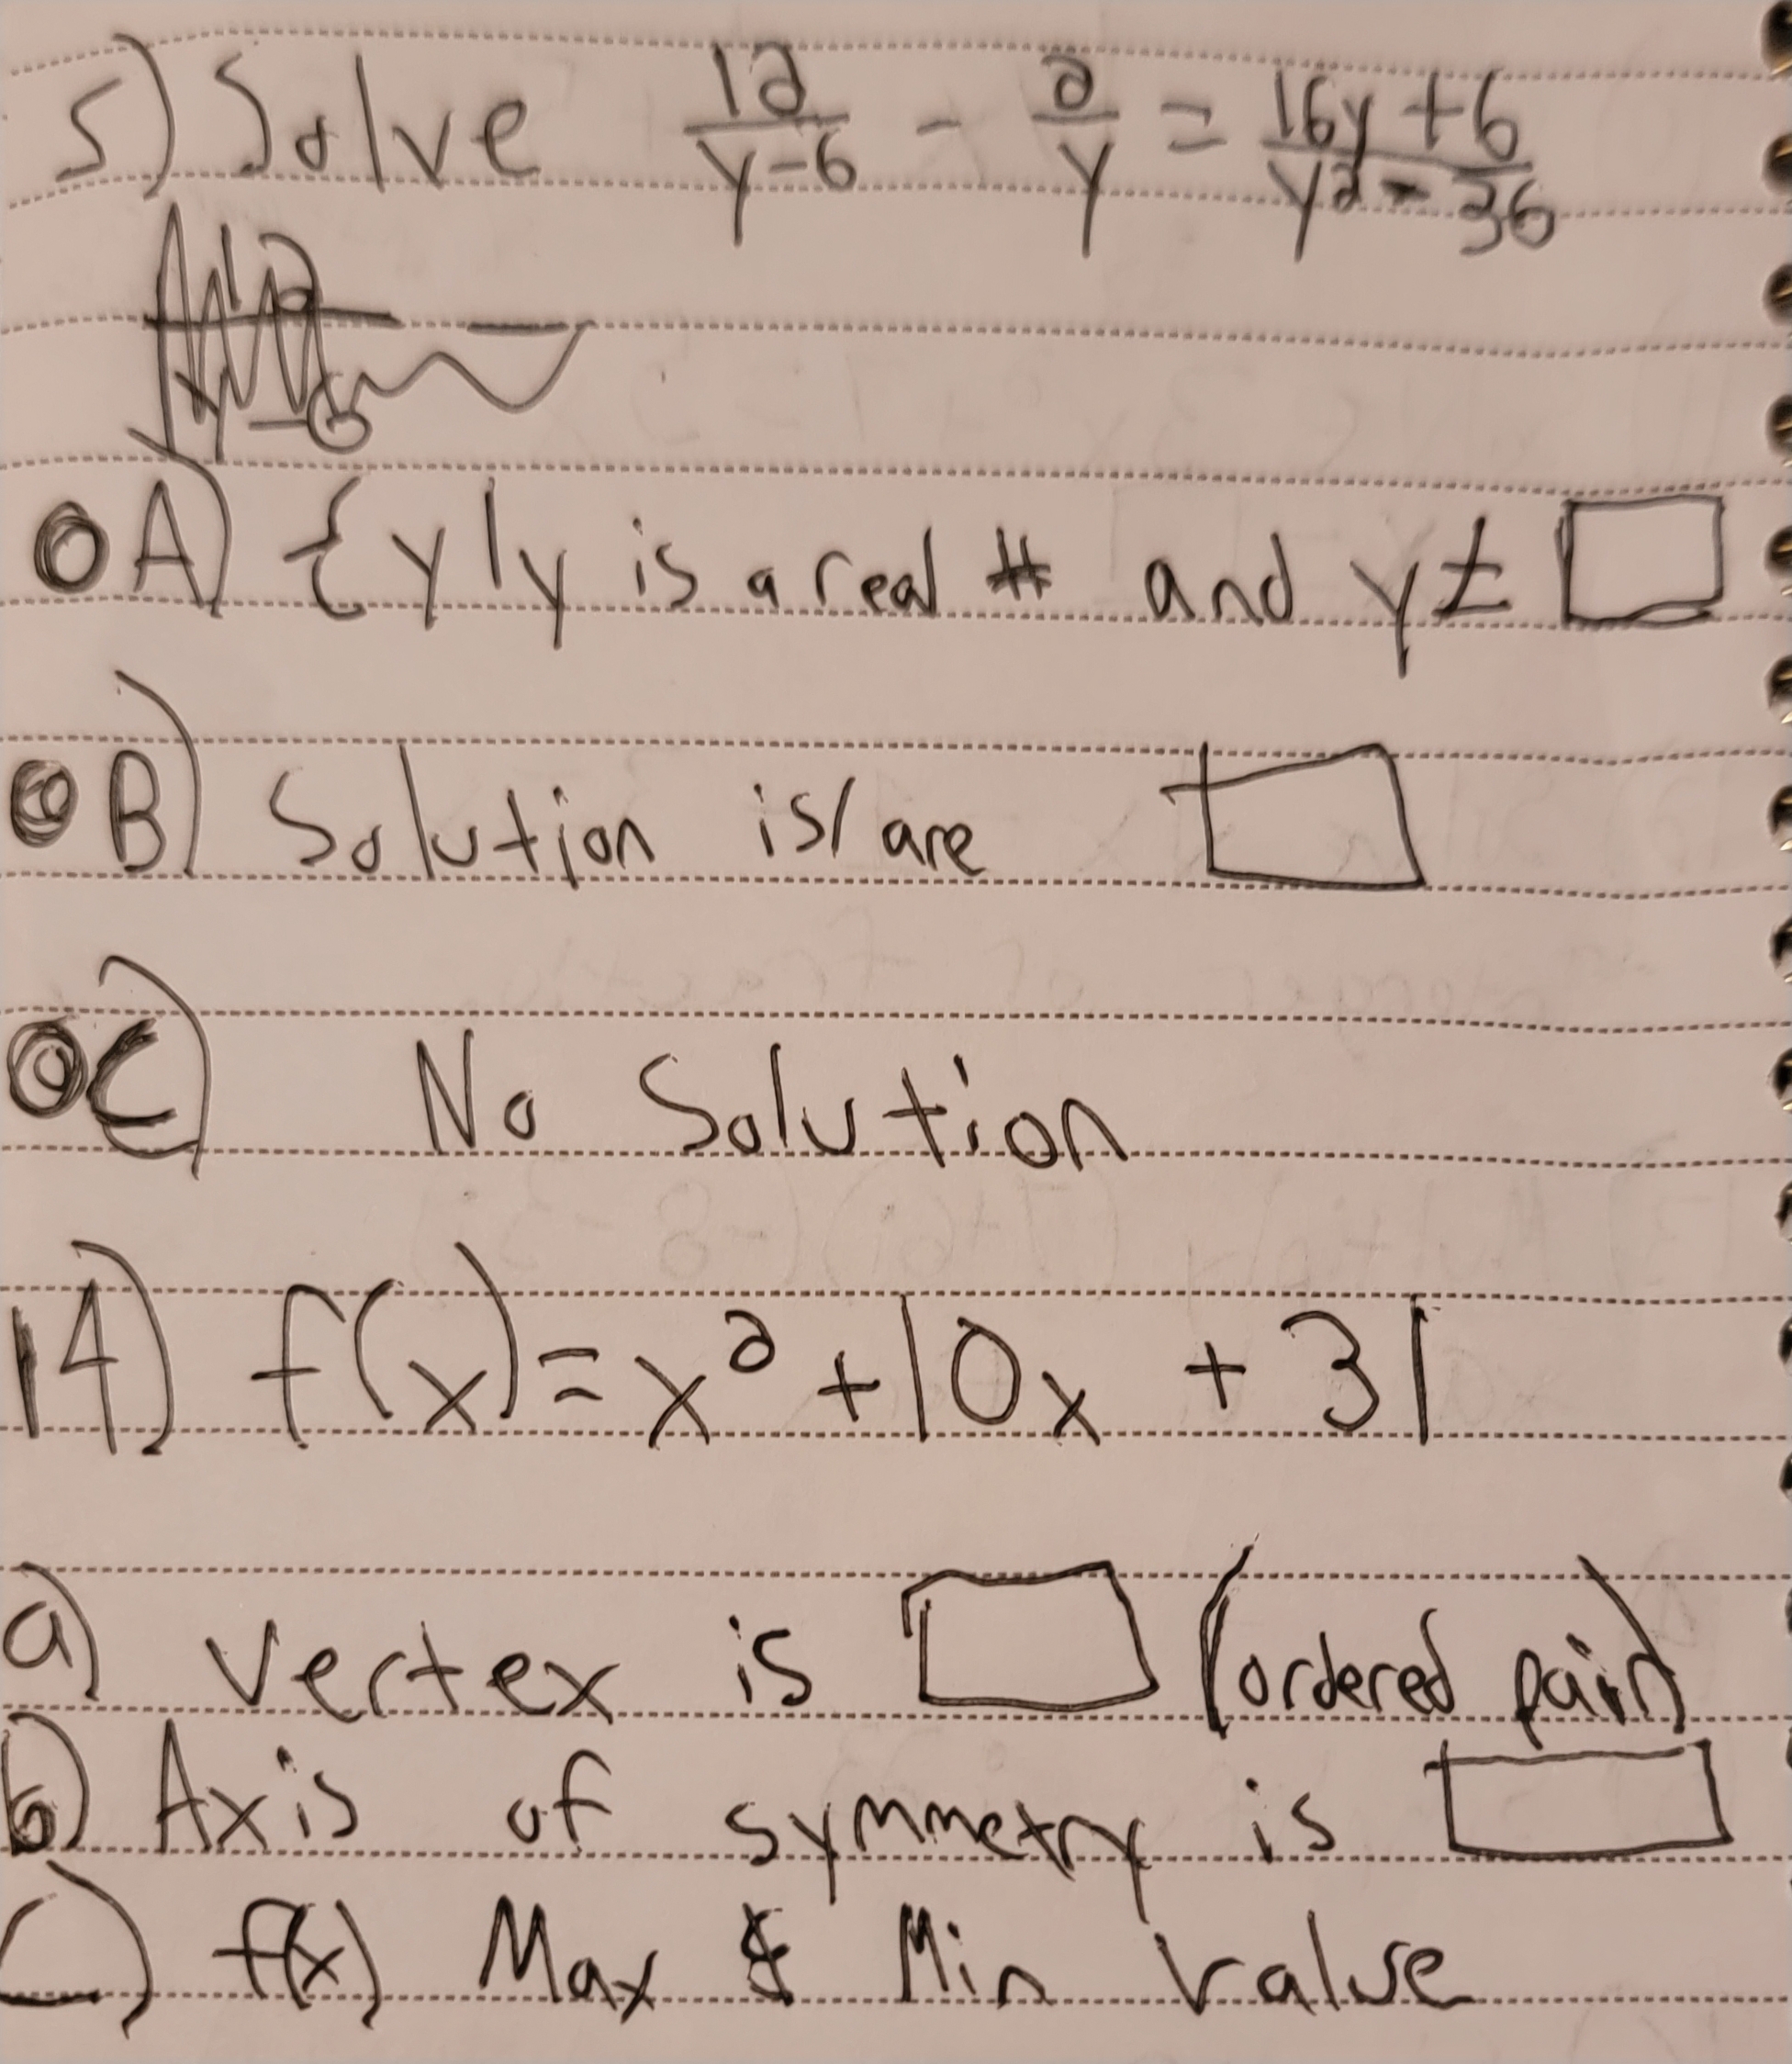 5) Solve 12/(y-6) - 2/y = (16y+6)/(y2-36)
A) {y|y is a real # and y ≠
B) Solution is/are
C) No Solution
14) f(x) = x² + 10x + 31
a) Vertex is (ordered pair)
b) Axis of symmetry is
c) f(x) Max & Min value